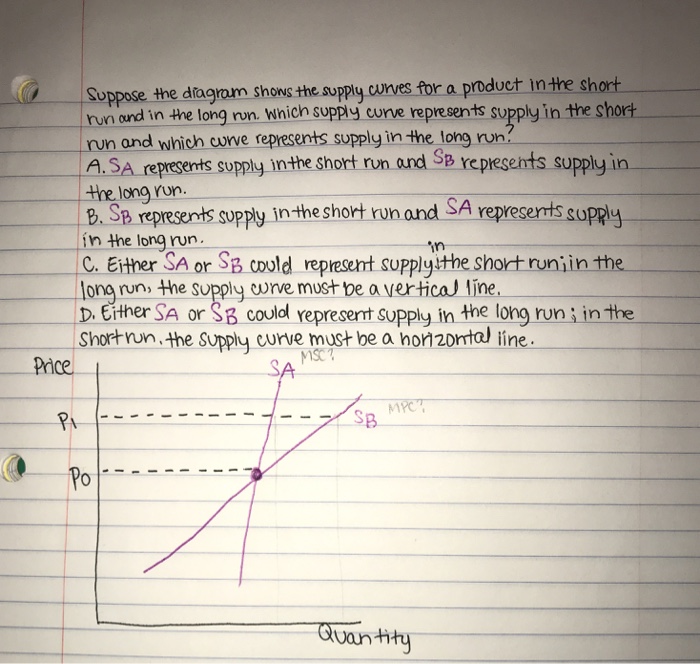 Suppose the diagram shows the supply curves for a product in the short
run and in the long run. Which supply curve represents supply in the short
run and which curve represents supply in the long run?
A. SA represents supply in the short run and SB represents supply in
the long run.
B. SB represents supply in the short run and SA represents supply
in the long run.
C. Either SA or SB could represent supply in the short run; in the
long run, the supply curve must be a vertical line.
D. Either SA or SB could represent supply in the long run; in the
short run, the supply curve must be a horizontal line.
Price
SA MSC?
P1
SB MPC?
Po
Quantity